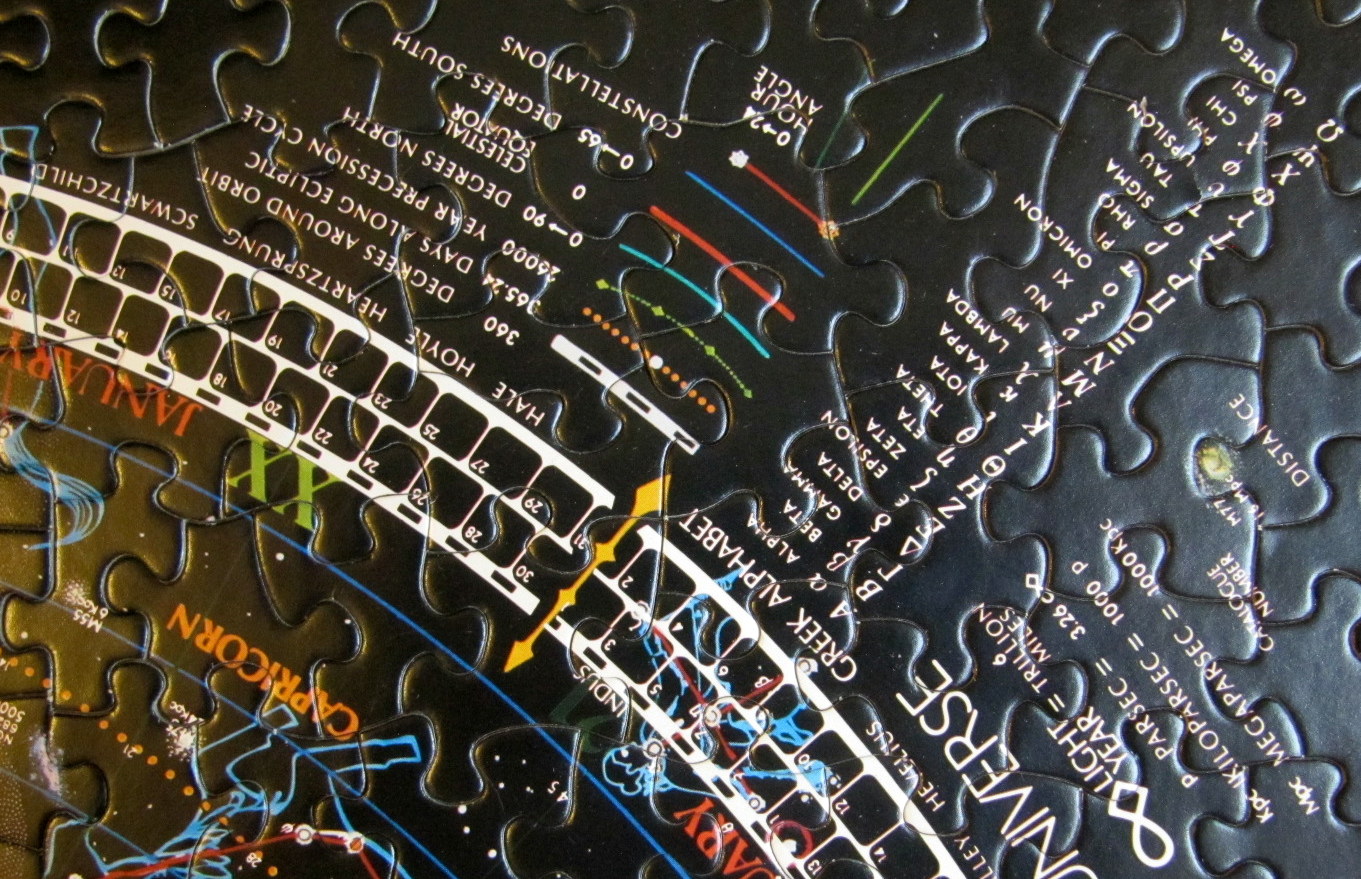 CONSTELLATIONS
0→65 DEGREES SOUTH
0 CELESTIAL EQUATOR
0→90 DEGREES NORTH
26000 YEAR PRECESSION CYCLE
365.24 DAYS ALONG ECLIPTIC
360 DEGREES AROUND ORBIT
0→24 HOUR ANGLE
SCWARTZCHILD
HEARTZSPRUNG
HOYLE
HALE
9 11 13 15 17 19 21 23 25 27 29 31
10 12 14 16 18 20 22 24 26 28 30
JANUARY
XI
CAPRICORN
M55
6 Kpc
21
28
45
2 4 6 8 10 12 14
3 5 7 9 11 13
GREEK ALPHABET
Α α ALPHA
Β β BETA
Γ γ GAMMA
Δ δ DELTA
Ε ε EPSILON
Ζ ζ ZETA
Η η ETA
Θ θ THETA
Ι ι IOTA
Κ κ KAPPA
Λ λ LAMBDA
Μ μ MU
Ν ν NU
Ξ ξ XI
Ο ο OMICRON
Π π PI
Ρ ρ RHO
Σ σ SIGMA
Τ τ TAU
Υ υ UPSILON
Φ φ PHI
Χ χ CHI
Ψ ψ PSI
Ω ω OMEGA
HEVELIUS
UNIVERSE
LIGHT YEAR = 6 TRILLION MILES
P PARSEC = 3.26
Kpc KILOPARSEC = 1000 P
Mpc MEGAPARSEC = 1000 Kpc
CATALOGUE NUMBER
DISTANCE